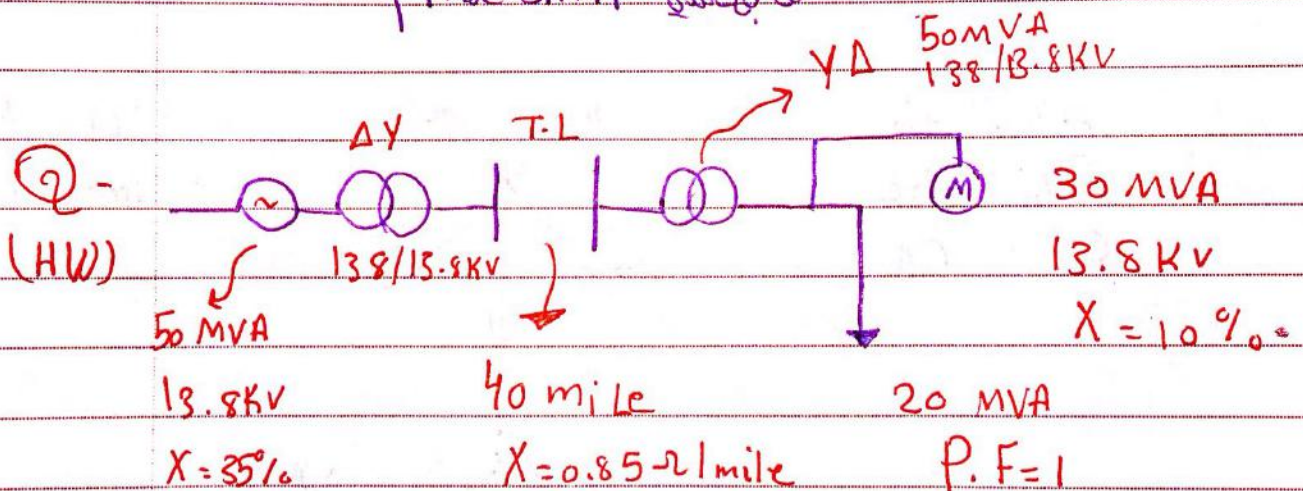 YΔ 50MVA
138/13.8KV
ΔY T.L
Q -
(HW)
~
M
30 MVA
138/13.8KV
13.8KV
X = 10%
50 MVA
13.8KV
X = 35%
40 mile
X = 0.85 Ω/mile
20 MVA
P.F = 1